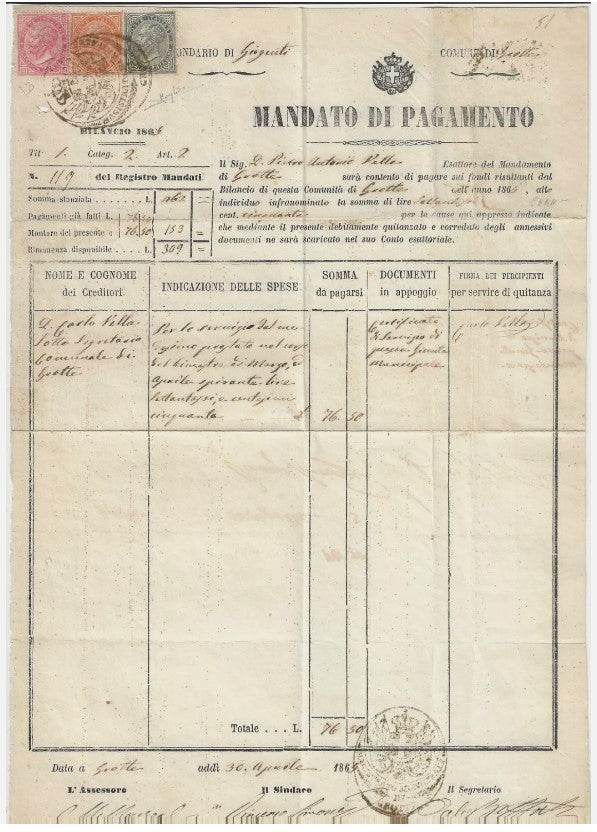 51
CONDARIO DI Girgenti
COMUNE DI Grotte
MANDATO DI PAGAMENTO
BILANCIO 186
Tit 1. Categ. 2. Art. 2
N. 119 del Registro Mandati
Somma stanziata L. 462 =
Pagamenti già fatti L. 76.50
Montare del presente e 76.50 153 =
Rimanenza disponibile L. 309 =
Il Sig. D. Pietro Antonio Vella Esattore del Mandamento
di Grotte sarà contento di pagare sui fondi risultanti dal
Bilancio di questa Comunità di Grotte dell'anno 1865, allo
individuo infranominato la somma di lire Settantasei
cent. cinquanta per le cause qui appresso indicate
che mediante il presente debitamente quitanzato e corredato degli annessivi
documenti ne sarà scaricato nel suo Conto esattoriale.
NOME E COGNOME dei Creditori
INDICAZIONE DELLE SPESE
SOMMA da pagarsi
DOCUMENTI in appoggio
FIRMA DEI PERCIPIENTI per servire di quitanza
D. Carlo Vella
Sotto Segretario
Comunale di
Grotte
Per lo servizio del me
desimo prestato nel corso
del bimestre di Marzo, ed
Aprile spirante lire
settantasei, e centesimi
cinquanta L. 76 50
Certificato
di servizio di
questa Giunta
Municipale
Carlo Vella
Totale . . . L. 76 50
Data a Grotte addì 30 Aprile 1865
L'Assessore
Il Sindaco
Il Segretario